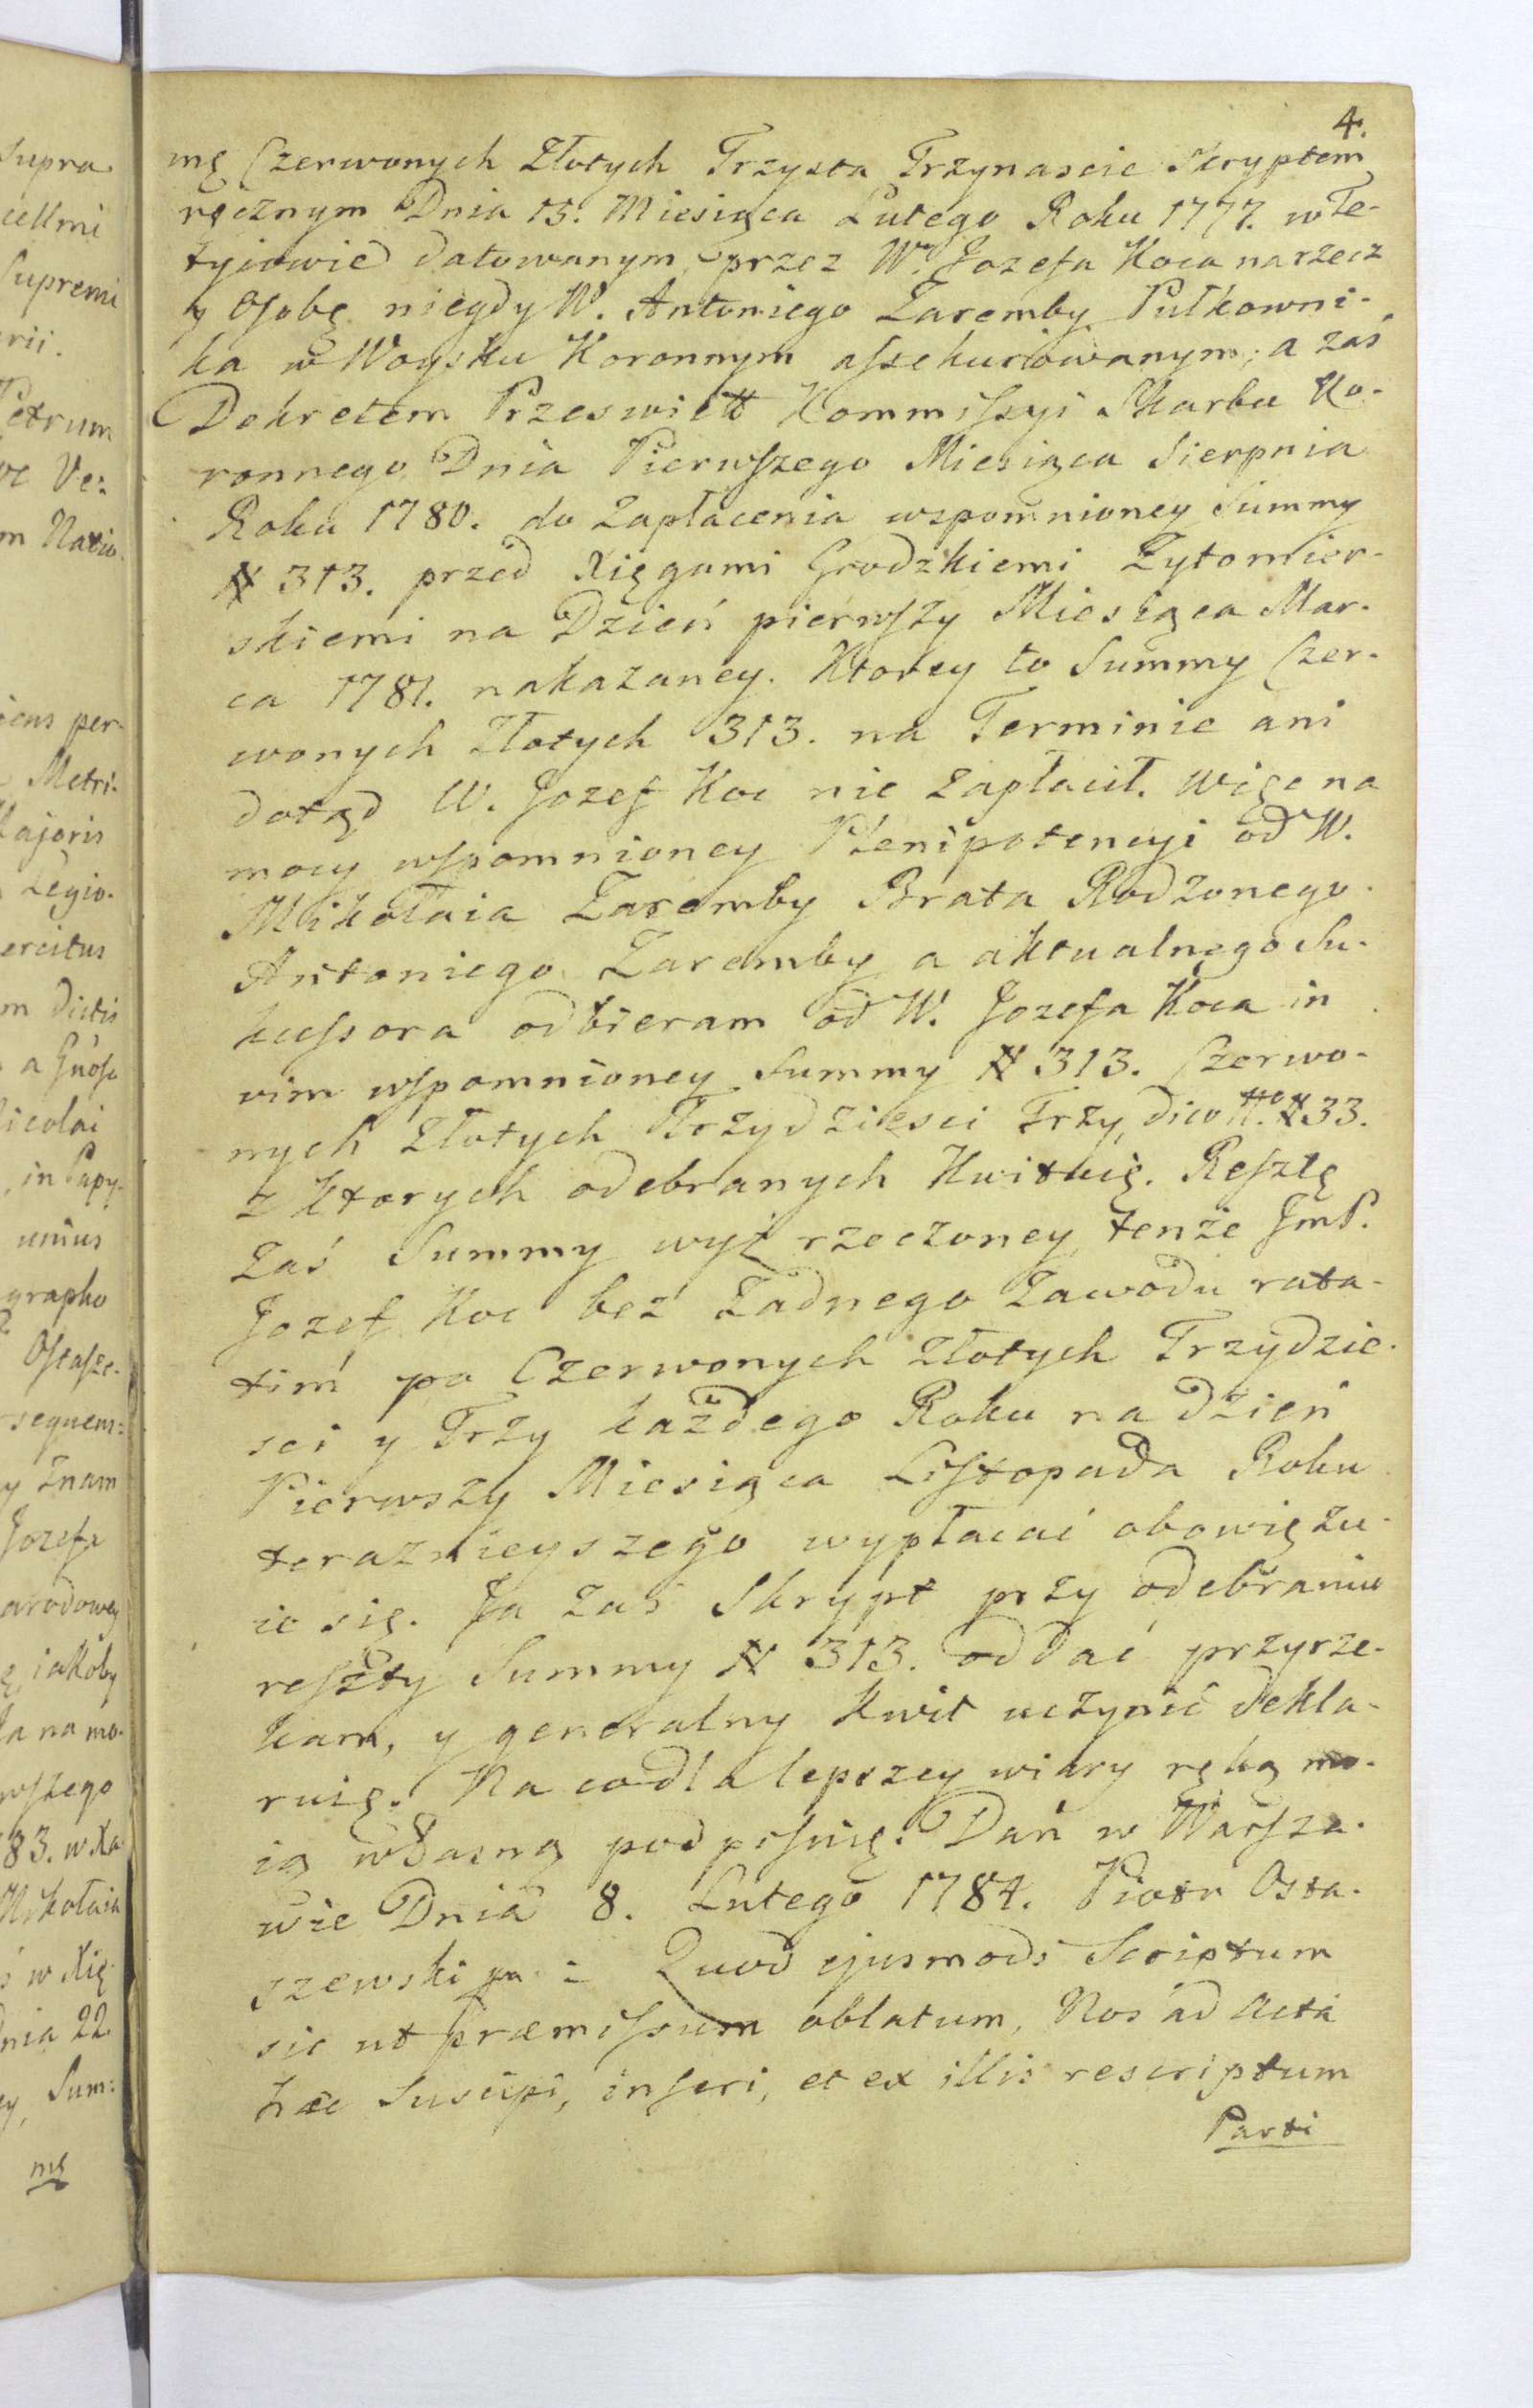 4.
mę Czerwonych Złotych Trzysta Trzynascie Skryptem
ręcznym Dnia 15. Miesiąca Lutego Roku 1777. w Te-
tyiowie datowanym, przez W. Jozefa Koca na rzecz
y Osobę niegdy W. Antoniego Zaremby Pułkowni-
ka w Woysku Koronnym assekurowanym; a zaś
Dekretem Przeswiett Kommissyi Skarbu Ko-
ronnego Dnia Pierwszego Miesiąca Sierpnia
Roku 1780. do zapłacenia wspomnioney Summy
# 313. przed Xięgami Grodzkiemi Zytomier-
skiemi na Dzień pierwszy Miesiąca Mar-
ca 1781. nakazaney. Ktorey to Summy Czer-
wonych Złotych 313. na Terminie ani
dotąd W. Jozef Koc nie zapłacił. Więc na
mocy wspomnioney Plenipotencyi od W.
Mikołaia Zaremby Brata Rodzonego
Antoniego Zaremby a aktualnego Su-
kcessora odbieram od W. Jozefa Koca in
vim wspomnioney Summy # 313. Czerwo-
nych Złotych Trzydziesci Trzy, dico # 33.
z ktorych odebranych Kwituię. Resztę
zaś Summy wyż rzeczoney tenże JmP.
Jozef Koc bez żadnego zawodu rata-
tim po Czerwonych Złotych Trzydzie-
sci y Trzy każdego Roku na dzień
Pierwszy Miesiąca Listopada Roku
teraznieyszego wypłacać obowiązu-
ie się. Ja zaś Skrypt przy odebraniu
reszty Summy # 313. oddać przyrze-
kam, y generalny Kwit uczynić dekla-
ruię. Na co dla lepszey wiary ręką mo-
ią własną podpisuię. Dań w Warsza-
wie Dnia 8. Lutego 1784. Piotr Osta-
szewski = Quod ejusmodi Scriptum
sic ut præmissum oblatum, Nos ad Acta
hæc Suscipi, inseri, et ex illis rescriptum
Parti